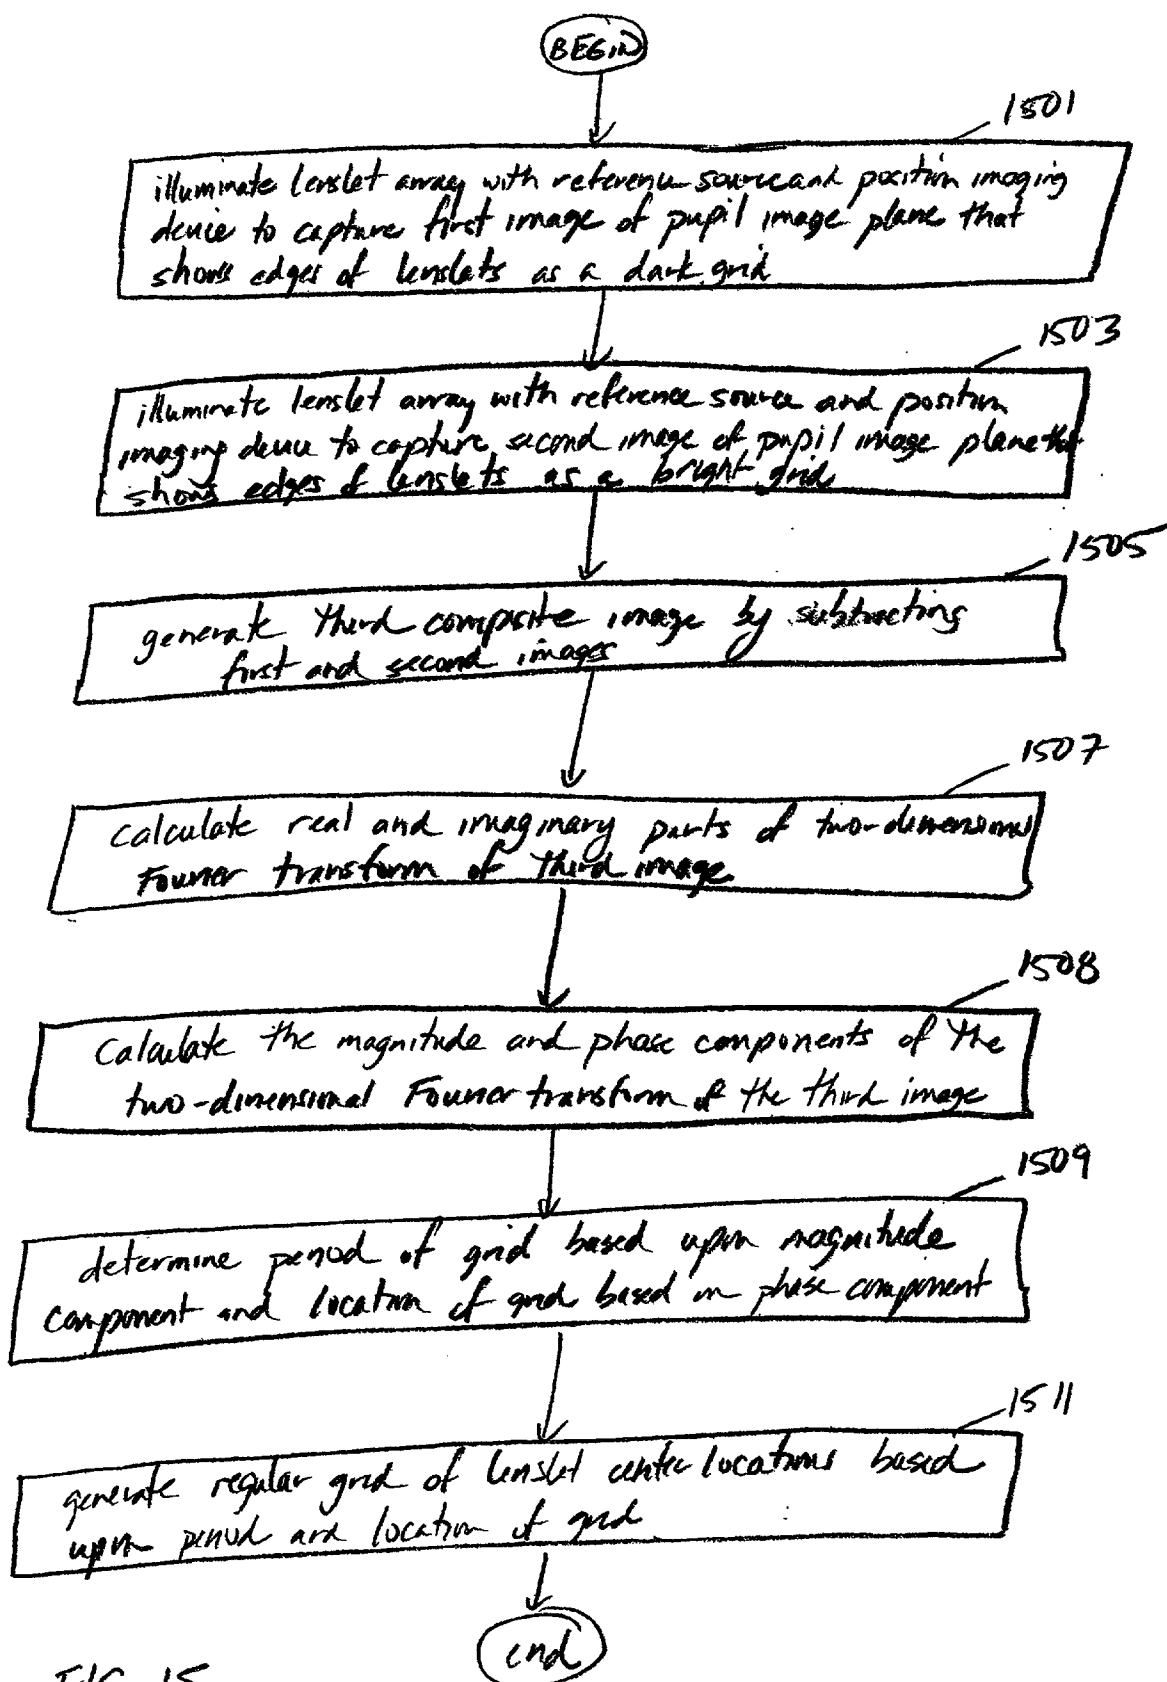 BEGIN
1501
illuminate lenslet array with reference source and position imaging
device to capture first image of pupil image plane that
shows edges of lenslets as a dark grid
1503
illuminate lenslet array with reference source and position
imaging device to capture second image of pupil image plane that
shows edges of lenslets as a bright grid
1505
generate third composite image by subtracting
first and second images
1507
calculate real and imaginary parts of two-dimensional
Fourier transform of third image
1508
Calculate the magnitude and phase components of the
two-dimensional Fourier transform of the third image
1509
determine period of grid based upon magnitude
component and location of grid based on phase component
1511
generate regular grid of lenslet center locations based
upon period and location of grid
end
FIG. 15